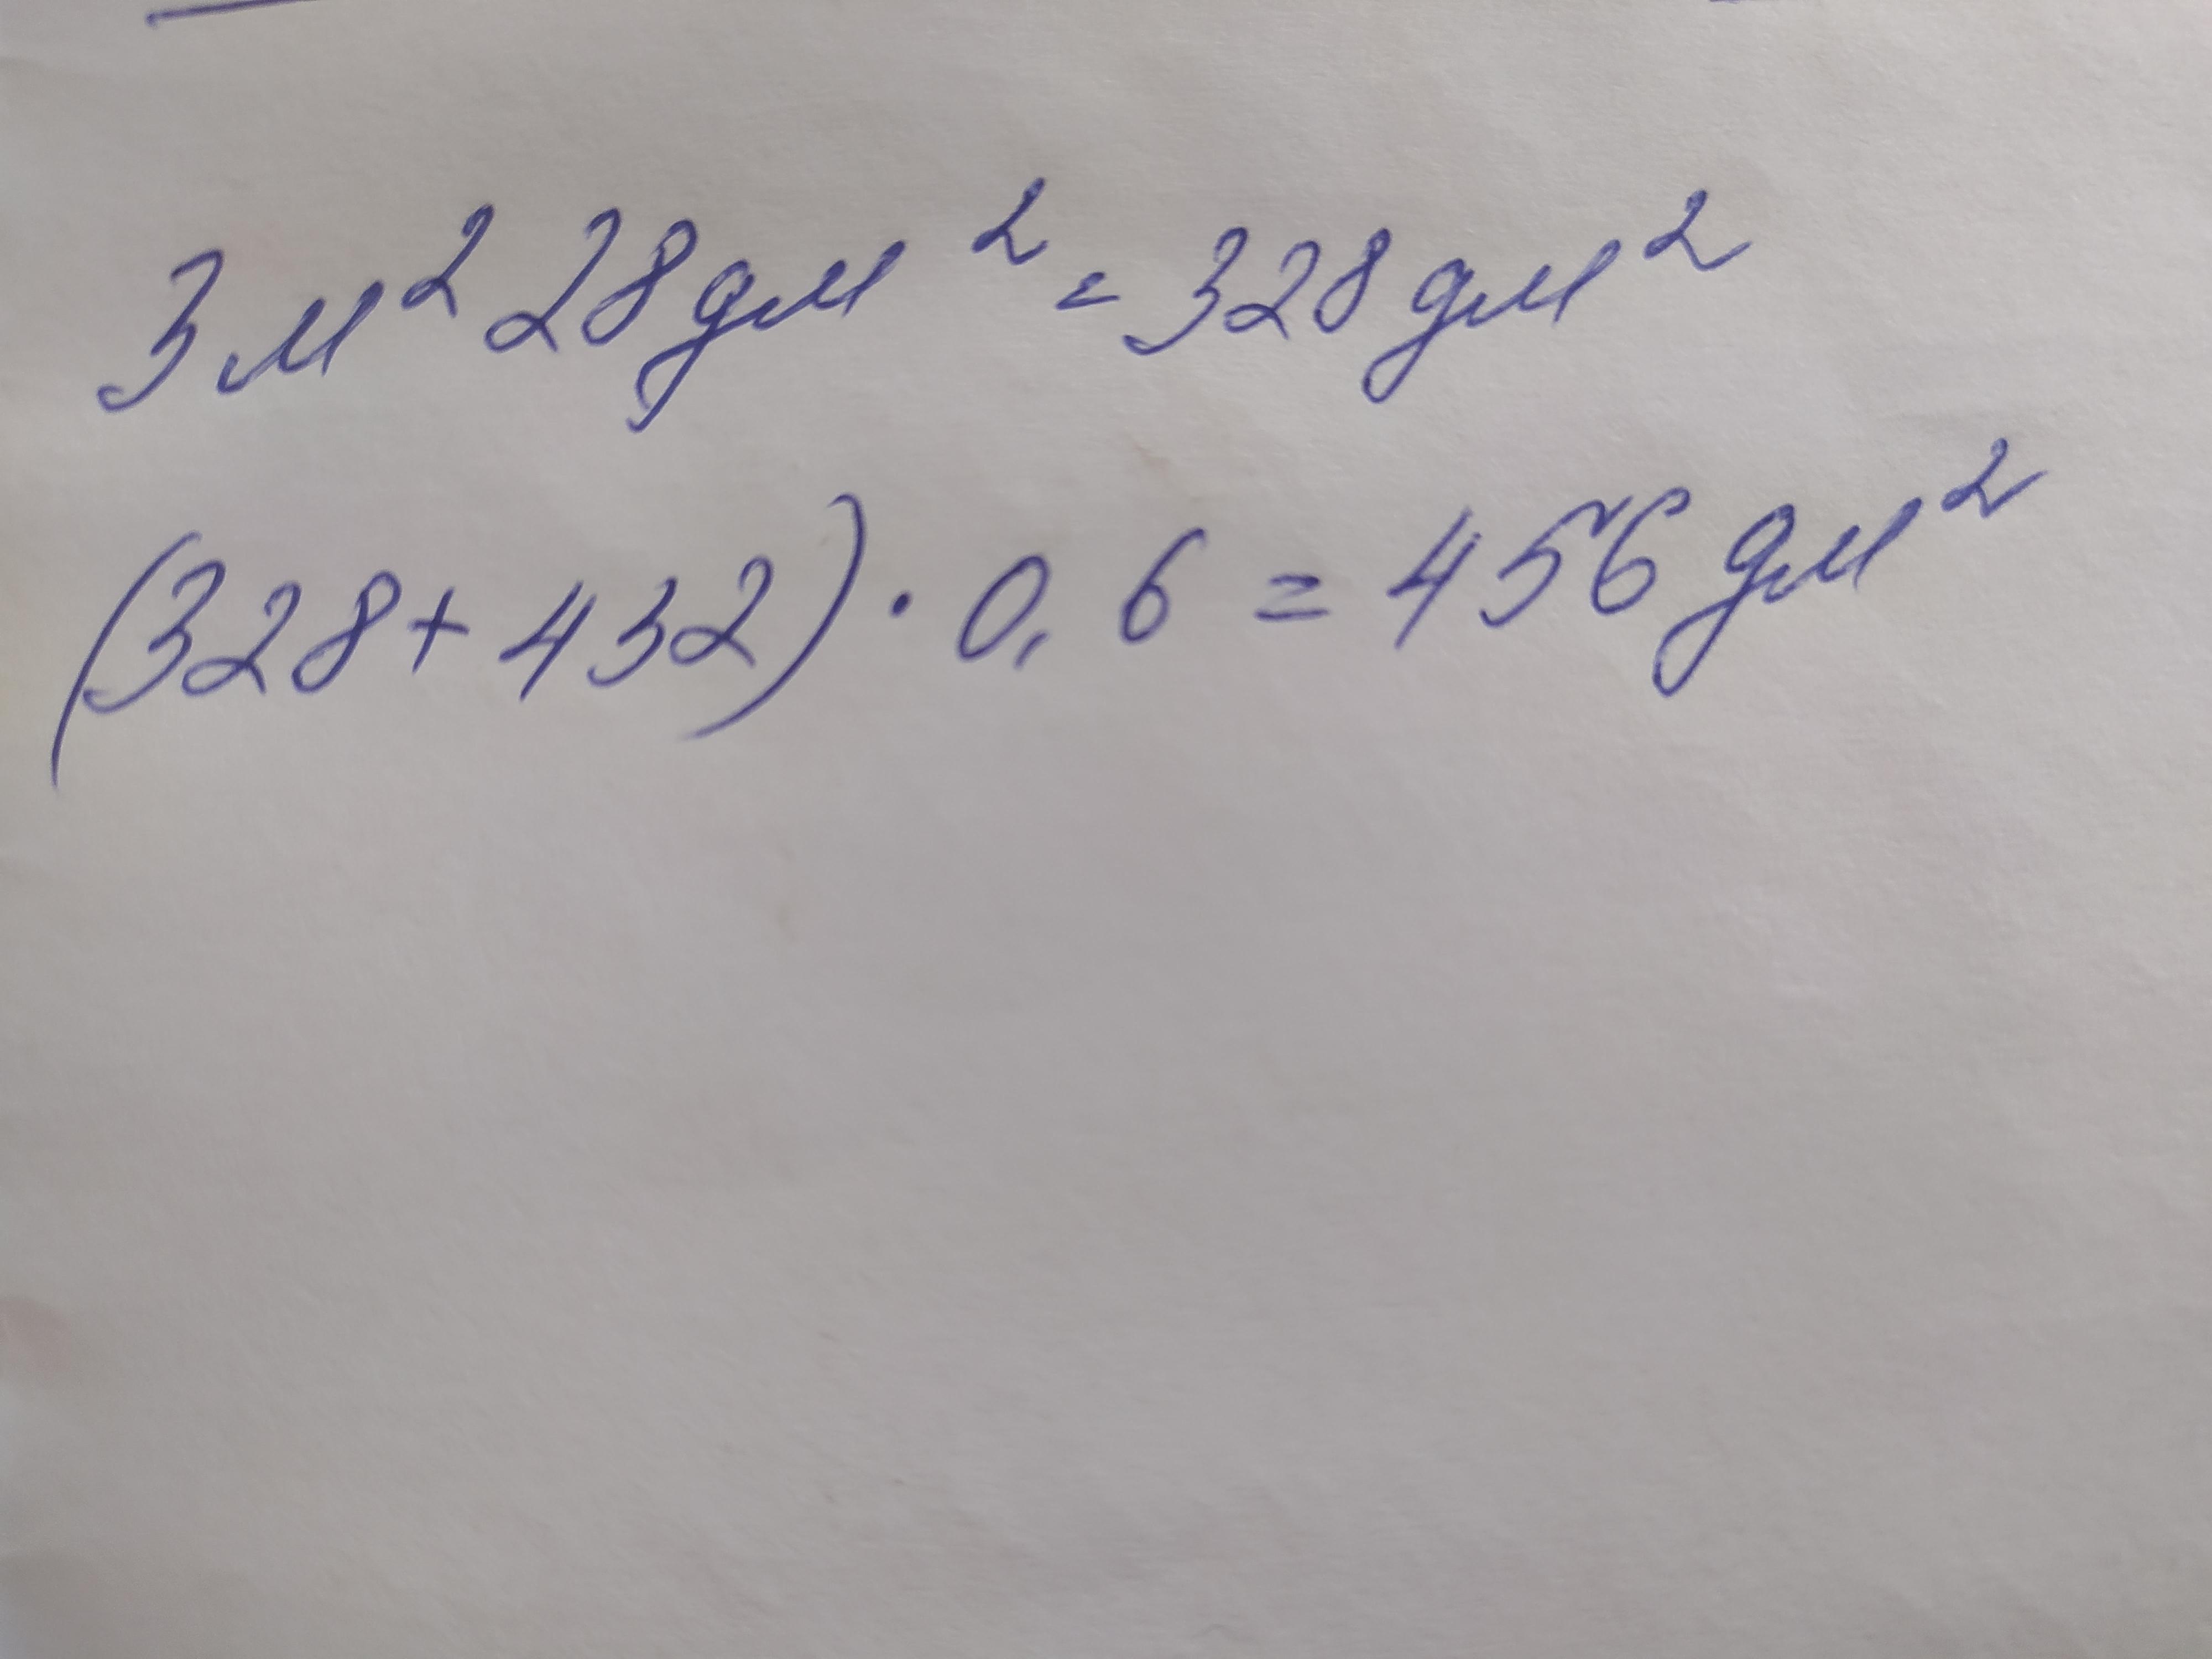 3 м² 28 дм² = 328 дм²
(328 + 432) · 0,6 = 456 дм²